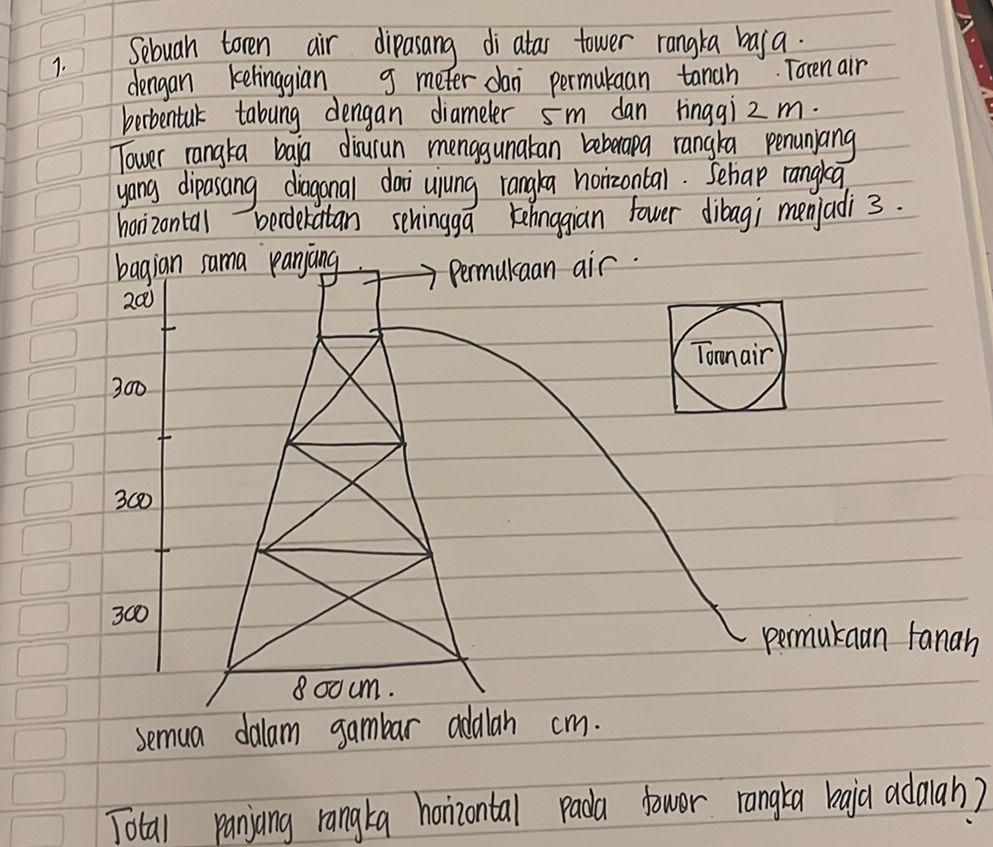 1. Sebuah toren air dipasang di atas tower rangka baja.
dengan ketinggian 9 meter dari permukaan tanah. Toren air
berbentuk tabung dengan diameter 5m dan tinggi 2 m.
Tower rangka baja disusun menggunakan beberapa rangka penunjang
yang dipasang diagonal dari ujung rangka horizontal. Setiap rangka
horizontal berdekatan sehingga ketinggian tower dibagi menjadi 3.
bagian sama panjang.
→ permukaan air.
200
Toren air
300
300
300
permukaan tanah
800 cm.
semua dalam gambar adalah cm.
Total panjang rangka horizontal pada tower rangka baja adalah?